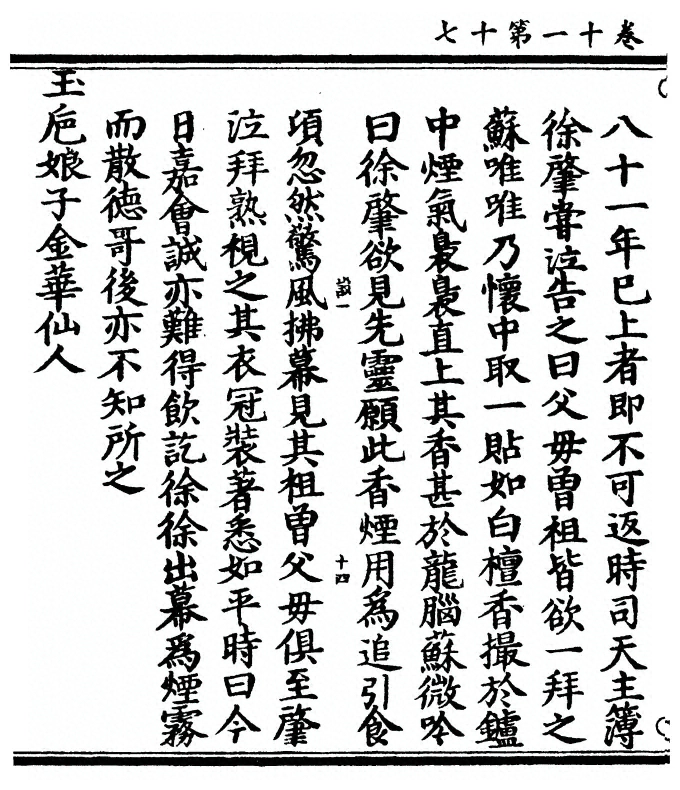 卷十一第十七
八十一年已上者即不可返時司天主簿
徐肇甞泣告之曰父毋曾祖皆欲一拜之
蘇唯唯乃懷中取一貼如白檀香撮於鑪
中煙氣裊裊直上其香甚於龍腦蘇微吟
曰徐肇欲見先靈願此香煙用為追引食
頃忽然驚風拂幕見其祖曾父毋俱至肇
泣拜熟視之其衣冠裝著悉如平時曰今
日嘉會誠亦難得飲訖徐徐出幕為煙霧
而散德哥後亦不知所之
玉巵娘子金華仙人
十四